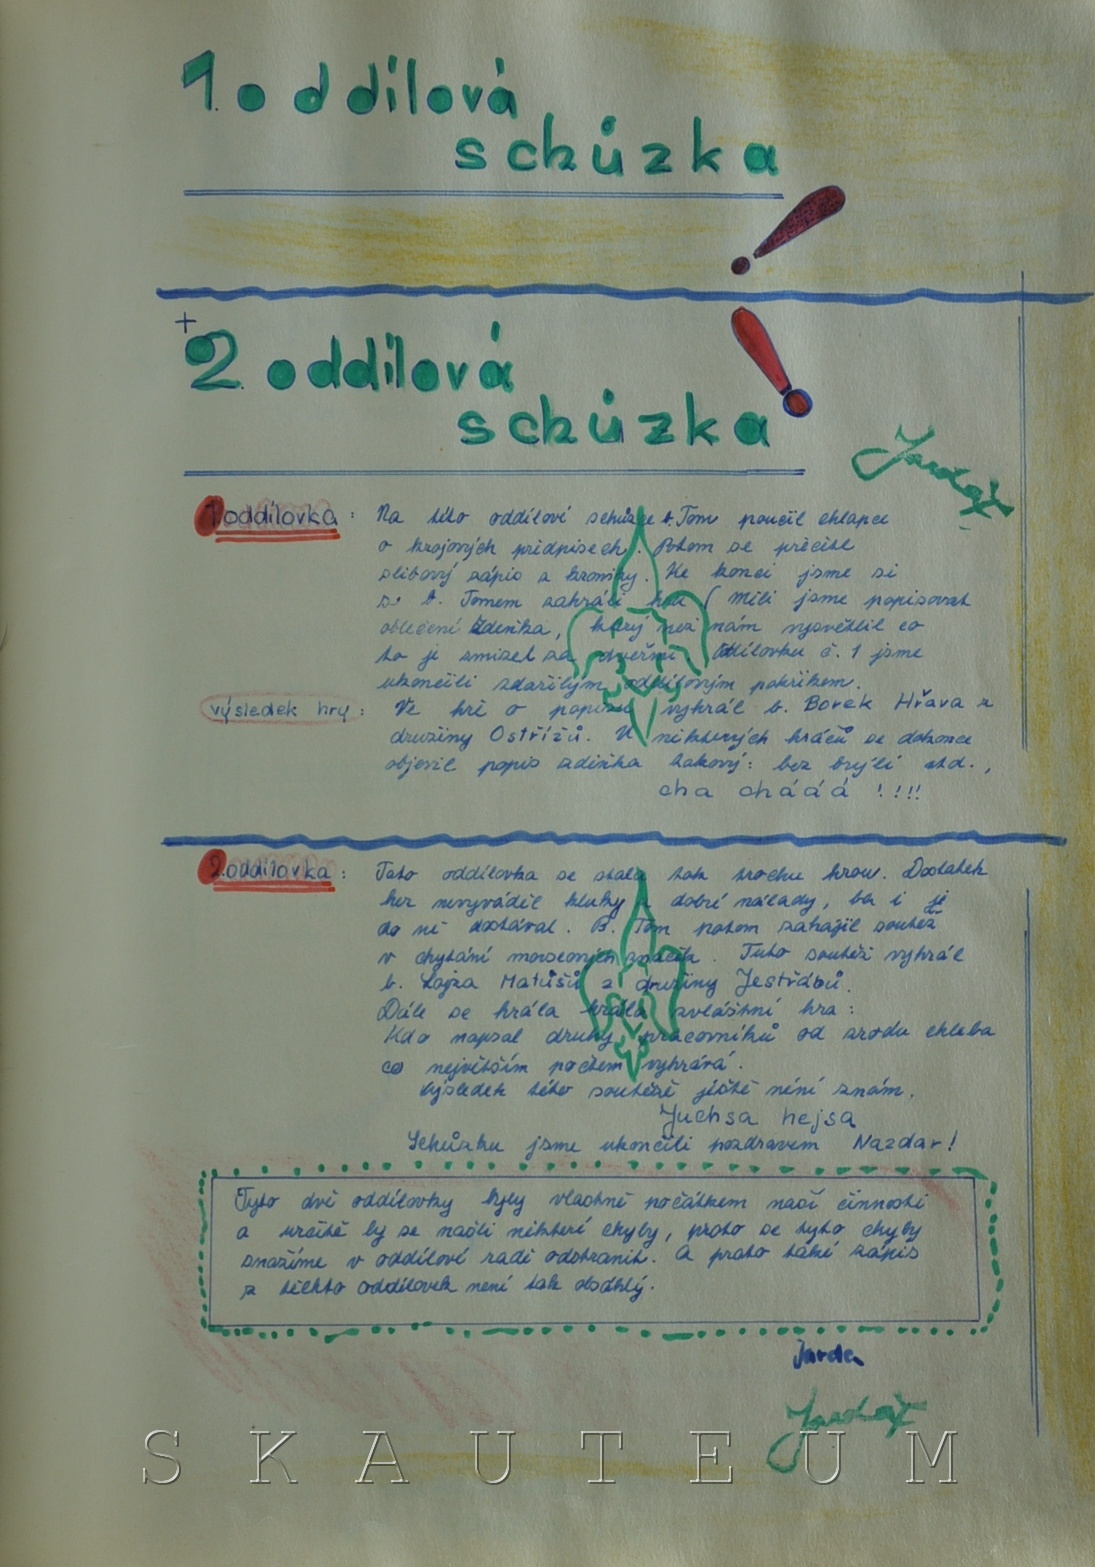 1. oddílová
schůzka !
+
2. oddílová
schůzka !
Jarda
1 oddílovka : Na této oddílové schůzce b. Tom poučil chlapce
o krojových předpisech. Potom se přečetl
slibový zápis z kroniky. Ke konci jsme si
s b. Tomem zahráli hru ( měli jsme popisovat
oblečení Zdeňka, který než nám vysvětlil co
to je zmizel za dveřmi Oddílovku č. 1 jsme
ukončili zdařilým oddílovým pokřikem.
výsledek hry : Ve hře o popisu vyhrál b. Borek Hřava z
družiny Ostřížů. U některých hráčů se dokonce
objevil popis zdeňka takový : bez brýlí atd. ,
cha cháááá !!!!
2. oddílovka : Tato oddílovka se stala tak trochu hrou. Dostatek
her nevyváděl kluky z dobré nálady, ba i je
do ní dostával. B. Tom potom zahájil soutěž
v chytání morseových značek. Tuto soutěž vyhrál
b. Lojza Matůšů z družiny Jestřábů.
Dále se hrála hrála zvláštní hra :
Kdo napsal druhy pracovníků od zrodu chleba
co největším počtem vyhrává.
Výsledek této soutěže ještě není znám.
Juchsa hejsa
Schůzku jsme ukončili pozdravem Nazdar !
Tyto dvě oddílovky byly vlastně počátkem naší činnosti
a určitě by se našli některé chyby, proto se tyto chyby
snažíme v oddílové radě odstranit. A proto také zápis
z těchto oddílovek není tak obsáhlý.
Jarda
Jarda
SKAUTEUM